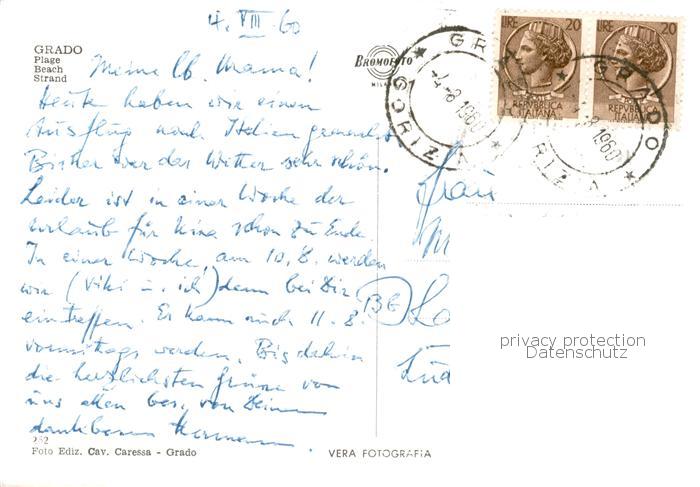 4. VIII 60
GRADO
Plage
Beach
Strand
BROMOFOTO
MILANO
LIRE 20
REPVBBLICA
ITALIANA
LIRE 20
REPVBBLICA
ITALIANA
GRADO
GORIZIA
-4-8 1960
GRADO
-8 1960
Meine lb. Mama!
Heute haben wir einen
Ausflug nach Italien gemacht
Bisher war das Wetter sehr schön.
Leider ist in einer Woche der
Urlaub für Nina schon zu Ende.
In einer Woche, am 10.8. werden
wir (Viki u. ich) dann bei Dir
eintreffen. Es kann auch 11.8.
vormittags werden. Bis dahin
die herzlichsten Grüsse von
uns allen bes. von Deinem
dankbaren Hermann.
Frau
privacy protection
Datenschutz
252
Foto Ediz. Cav. Caressa - Grado
VERA FOTOGRAFIA